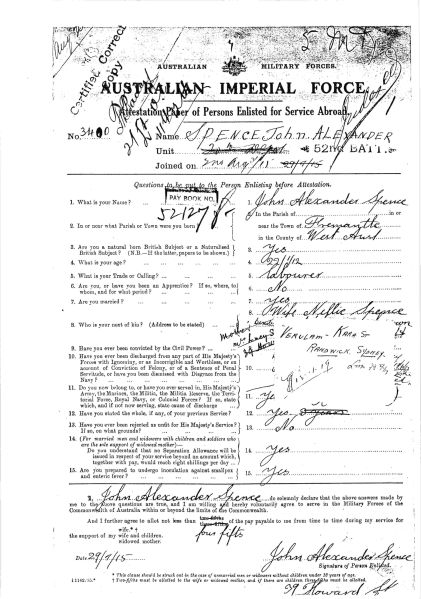 Certified Correct
Copy
AUSTRALIAN MILITARY FORCES.
AUSTRALIAN IMPERIAL FORCE.
Attestation Paper of Persons Enlisted for Service Abroad.
No. 3400 Name SPENCE John ALEXANDER
Unit 52nd BATT.
Joined on
Questions to be put to the Person Enlisting before Attestation.
PAY BOOK NO.
52127
1. What is your Name? 1. John Alexander Spence
2. In or near what Parish or Town were you born? 2. In the Parish of in or
near the Town of Fremantle
in the County of West Aust
3. Are you a natural born British Subject or a Naturalised British Subject? (N.B.—If the latter, papers to be shown). 3. Yes
4. What is your age? 4.
5. What is your Trade or Calling? 5. Labourer
6. Are you, or have you been an Apprentice? If so, where, to whom, and for what period? 6. No
7. Are you married? 7. Yes
8. Who is your next of kin? (Address to be stated) 8. Wife Nellie Spence
VERULAM
RANDWICK SYDNEY
9. Have you ever been convicted by the Civil Power? 9.
10. Have you ever been discharged from any part of His Majesty's Forces with Ignominy, or as Incorrigible and Worthless, or on account of Conviction of Felony, or of a Sentence of Penal Servitude, or have you been dismissed with Disgrace from the Navy? 10.
11. Do you now belong to, or have you ever served in, His Majesty's Army, the Marines, the Militia, the Militia Reserve, the Territorial Force, Royal Navy, or Colonial Forces? If so, state which, and if not now serving, state cause of discharge 11.
12. Have you stated the whole, if any, of your previous Service? 12. Yes
13. Have you ever been rejected as unfit for His Majesty's Service? If so, on what grounds? 13. No
14. (For married men and widowers with children and soldiers who are the sole support of widowed mother)—
Do you understand that no Separation Allowance will be issued in respect of your service beyond an amount which, together with pay, would reach eight shillings per day 14. Yes
15. Are you prepared to undergo inoculation against smallpox and enteric fever? 15. Yes
I, John Alexander Spence do solemnly declare that the above answers made by
me to the above questions are true, and I am willing and hereby voluntarily agree to serve in the Military Forces of the
Commonwealth of Australia within or beyond the limits of the Commonwealth.
And I further agree to allot not less than four fifts of the pay payable to me from time to time during my service for
the support of my wife and children.
widowed mother.
Date 29/7/15 John Alexander Spence
Signature of Person Enlisted.
* This clause should be struck out in the case of unmarried men or widowers without children under 18 years of age.
Howard St